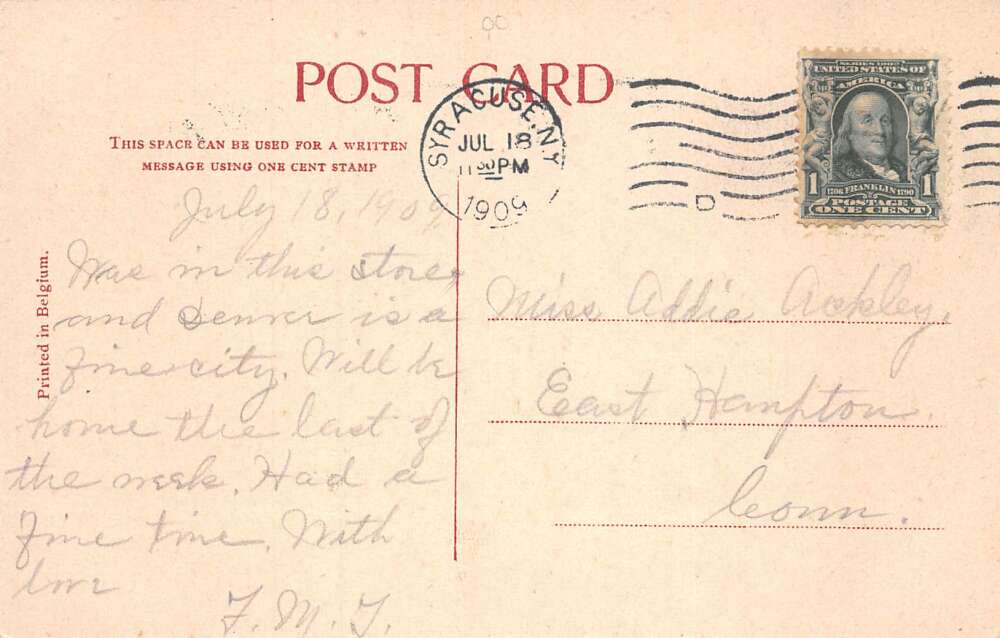 POST CARD
THIS SPACE CAN BE USED FOR A WRITTEN
MESSAGE USING ONE CENT STAMP
SYRACUSE, N.Y.
JUL 18
11 30 PM
1909
D
SERIES 1902
UNITED STATES OF
AMERICA
1 FRANKLIN 1
1706 1790
POSTAGE
ONE CENT
Printed in Belgium.
July 18, 1909,
Was in this store,
and Denver is a
fine city. Will be
home the last of
the week. Had a
fine time. With
love
F. M. J.
Miss Addie Ackley,
East Hampton.
Conn.